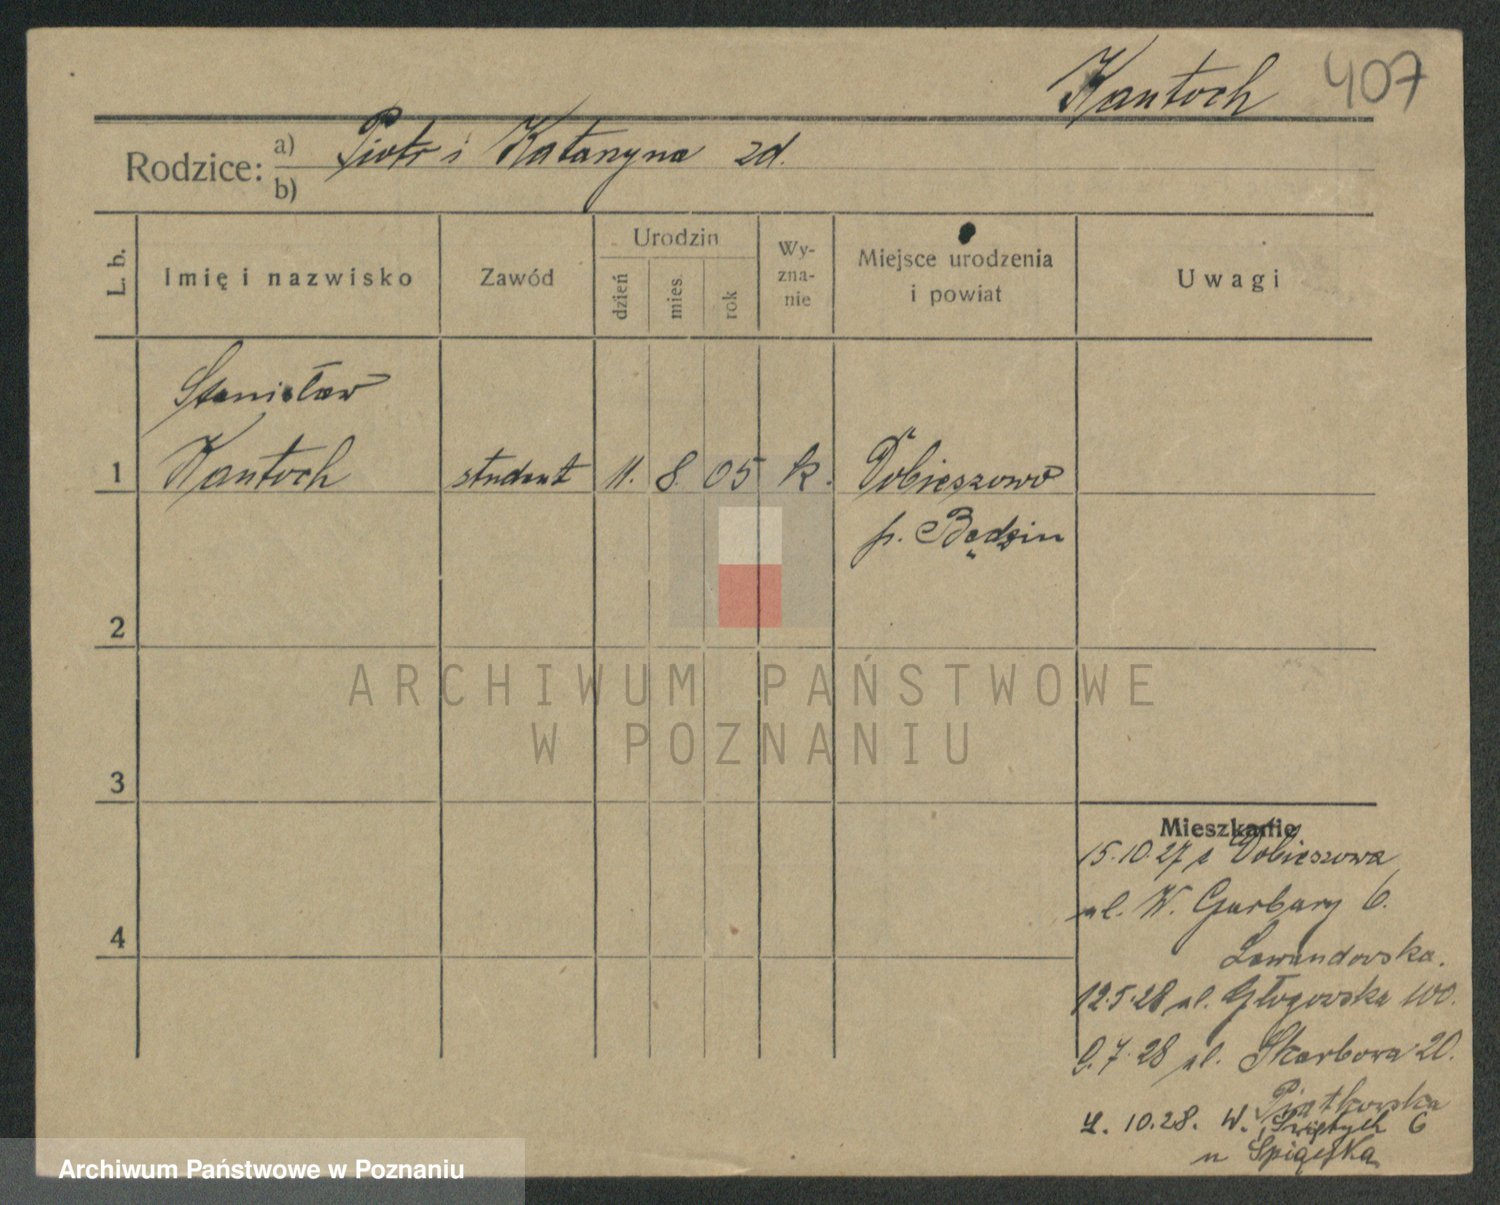 Kantoch 407
Rodzice: a) Piotr i Katarzyna zd.
b)
L. b.
Imię i nazwisko
Zawód
Urodzin
dzień
mies.
rok
Wy-
zna-
nie
Miejsce urodzenia
i powiat
Uwagi
Stanisław
1 Kantoch student 11. 8. 05 k. Dobieszowo
p. Będzin
2
ARCHIWUM PAŃSTWOWE
W POZNANIU
3
Mieszkanie
15.10.27 z Dobieszowa
ul. W. Garbary 6.
4
Lewandowska.
12.5.28 ul. Głogowska 100.
9.7.28 ul. Skarbowa 20.
Piątkowska
2.10.28. W. Świętych 6
u
Archiwum Państwowe w Poznaniu